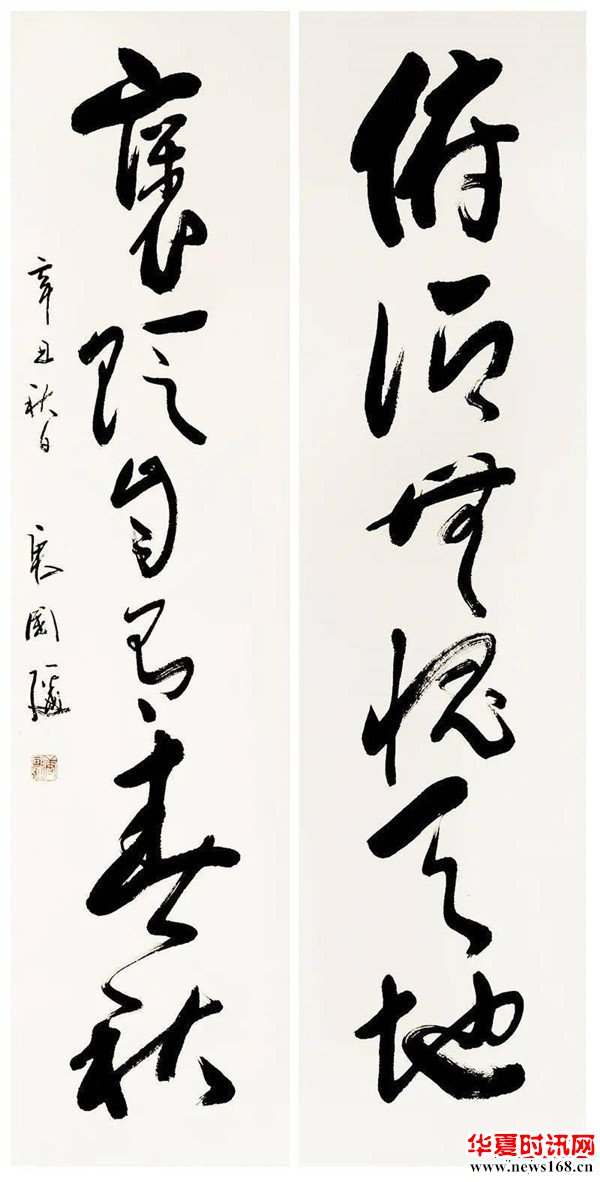 俯仰無愧天地
褒貶自有春秋
辛丑秋日
國
华夏时讯网
www.news168.cn